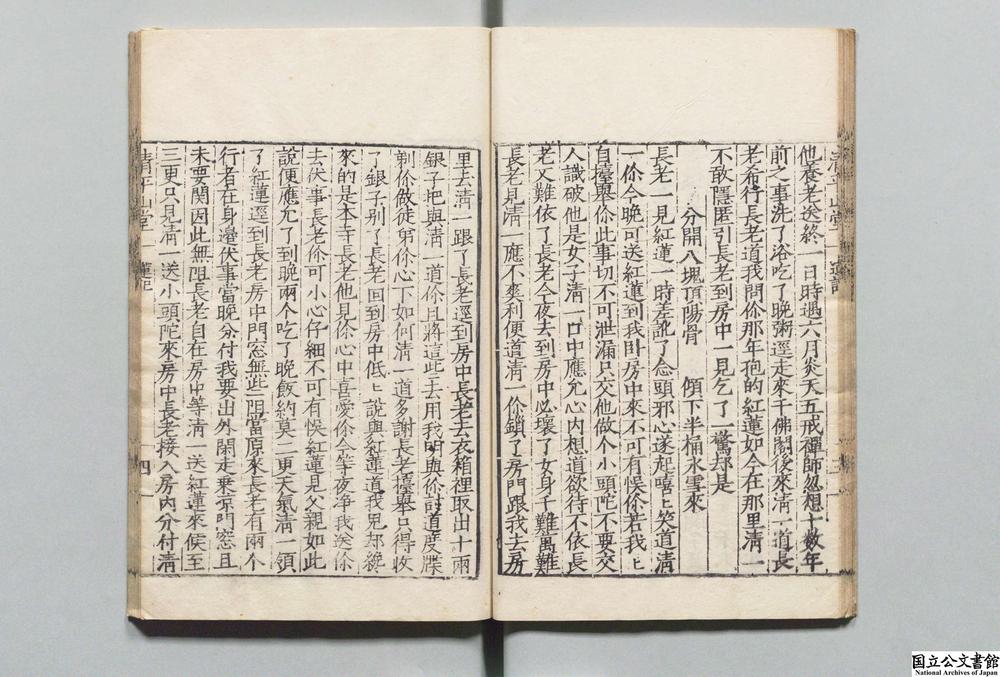 他養老送終一日時遇六月炎天五戒禪師忽想十數年
前之事洗了浴吃了晚粥逕走來千佛閣後來清一道長
老希行長老道我問你那年抱的紅蓮如今在那里清一
不敢隱匿引長老到房中一見乞了一驚却是
分開八塊頂陽骨　傾下半桶氷雪來
長老一見紅蓮一時差訛了念頭邪心遂起嘻上笑道清
一你今晚可送紅蓮到我卧房中來不可有悞你若我上
自擡舉你此事切不可泄漏只交他做个小頭陀不要交
人識破他是女子清一口中應允心內想道欲待不依長
老又難依了長老今夜去到房中必壞了女身千難萬難
長老見清一應不爽利便道清一你鎖了房門跟我去房
里去清一跟了長老逕到房中長老去衣箱裡取出十兩
銀子把與清一道你且將這些去用我明與你討道度牒
剃你做徒弟你心下如何清一道多謝長老擡舉只得收
了銀子別了長老回到房中低上說與紅蓮道我兒却纔
來的是本寺長老他見你心中喜愛你今等夜净我送你
去伏事長老你可小心仔細不可有悞紅蓮見父親如此
說便應允了到晚兩个吃了晚飯約莫二更天氣清一領
了紅蓮逕到長老房中門窓無些阻當原來長老有兩个
行者在身邉伏事當晚分付我要出外閑走乘凉門窓且
未要関因此無阻長老自在房中等清一送紅蓮來候至
三更只見清一送小頭陀來房中長老接入房內分付清
清平山堂　蓮記　四
国立公文書館
National Archives of Japan